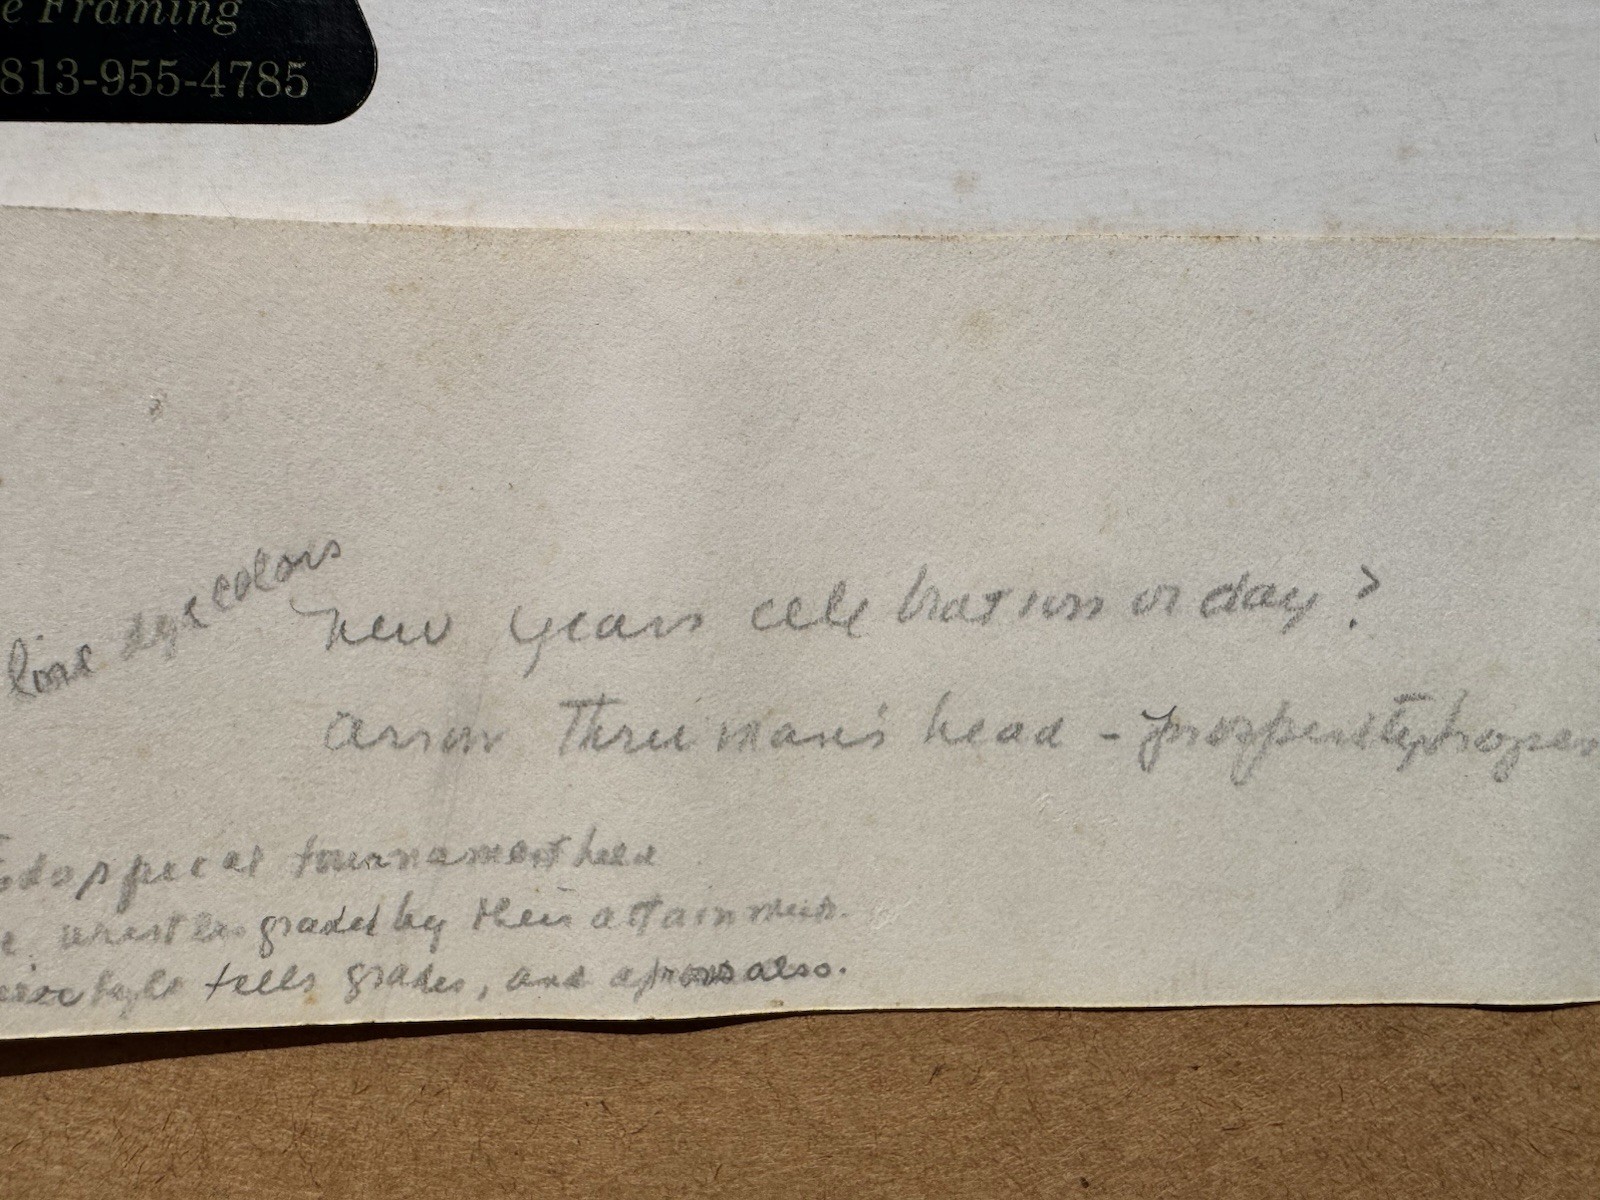 e Framing
813-955-4785
line dye colors
New years celebration or day?
arrow Thru man's head - prosperity
special tournament held
graded by their attainments.
style tells grades, and aprons also.